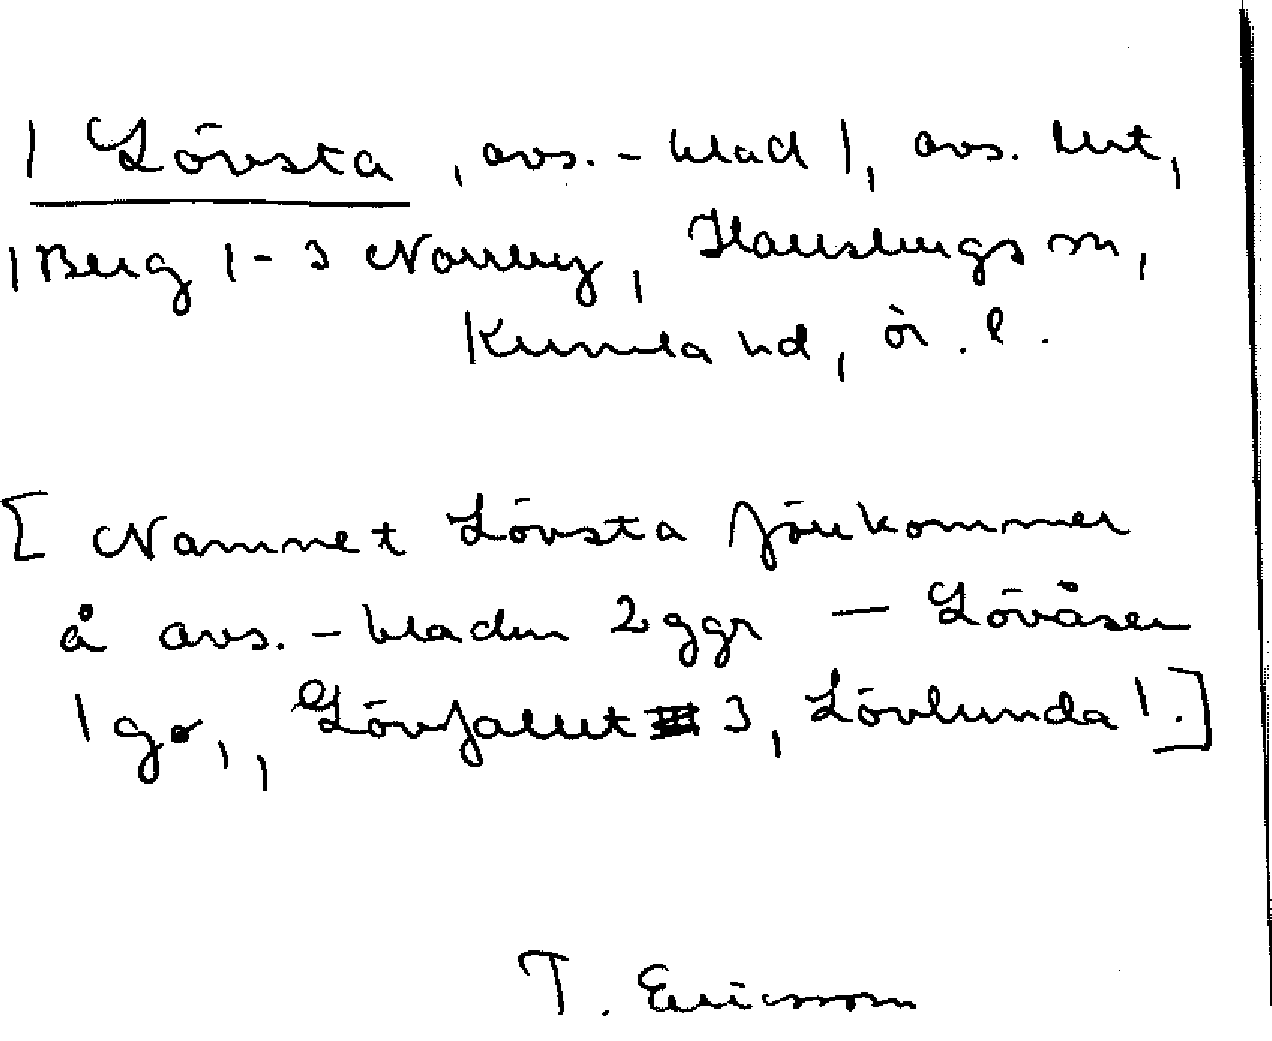 | Lövsta, avs.-blad 1, avs. lht,
1 Berg 1-3 Norrby, Hallsbergs sn,
Kumla hd, ör. l.
[Namnet Lövsta förekommer
å avs.-bladen 2 ggr — Lövåsen
1 g., Lövfallet 3, Lövlunda 1.]
T. Ericsson